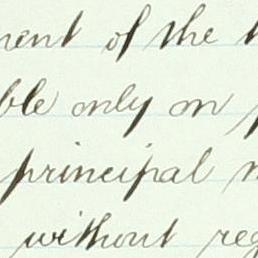 ment of the
ble only on
principal
without reg